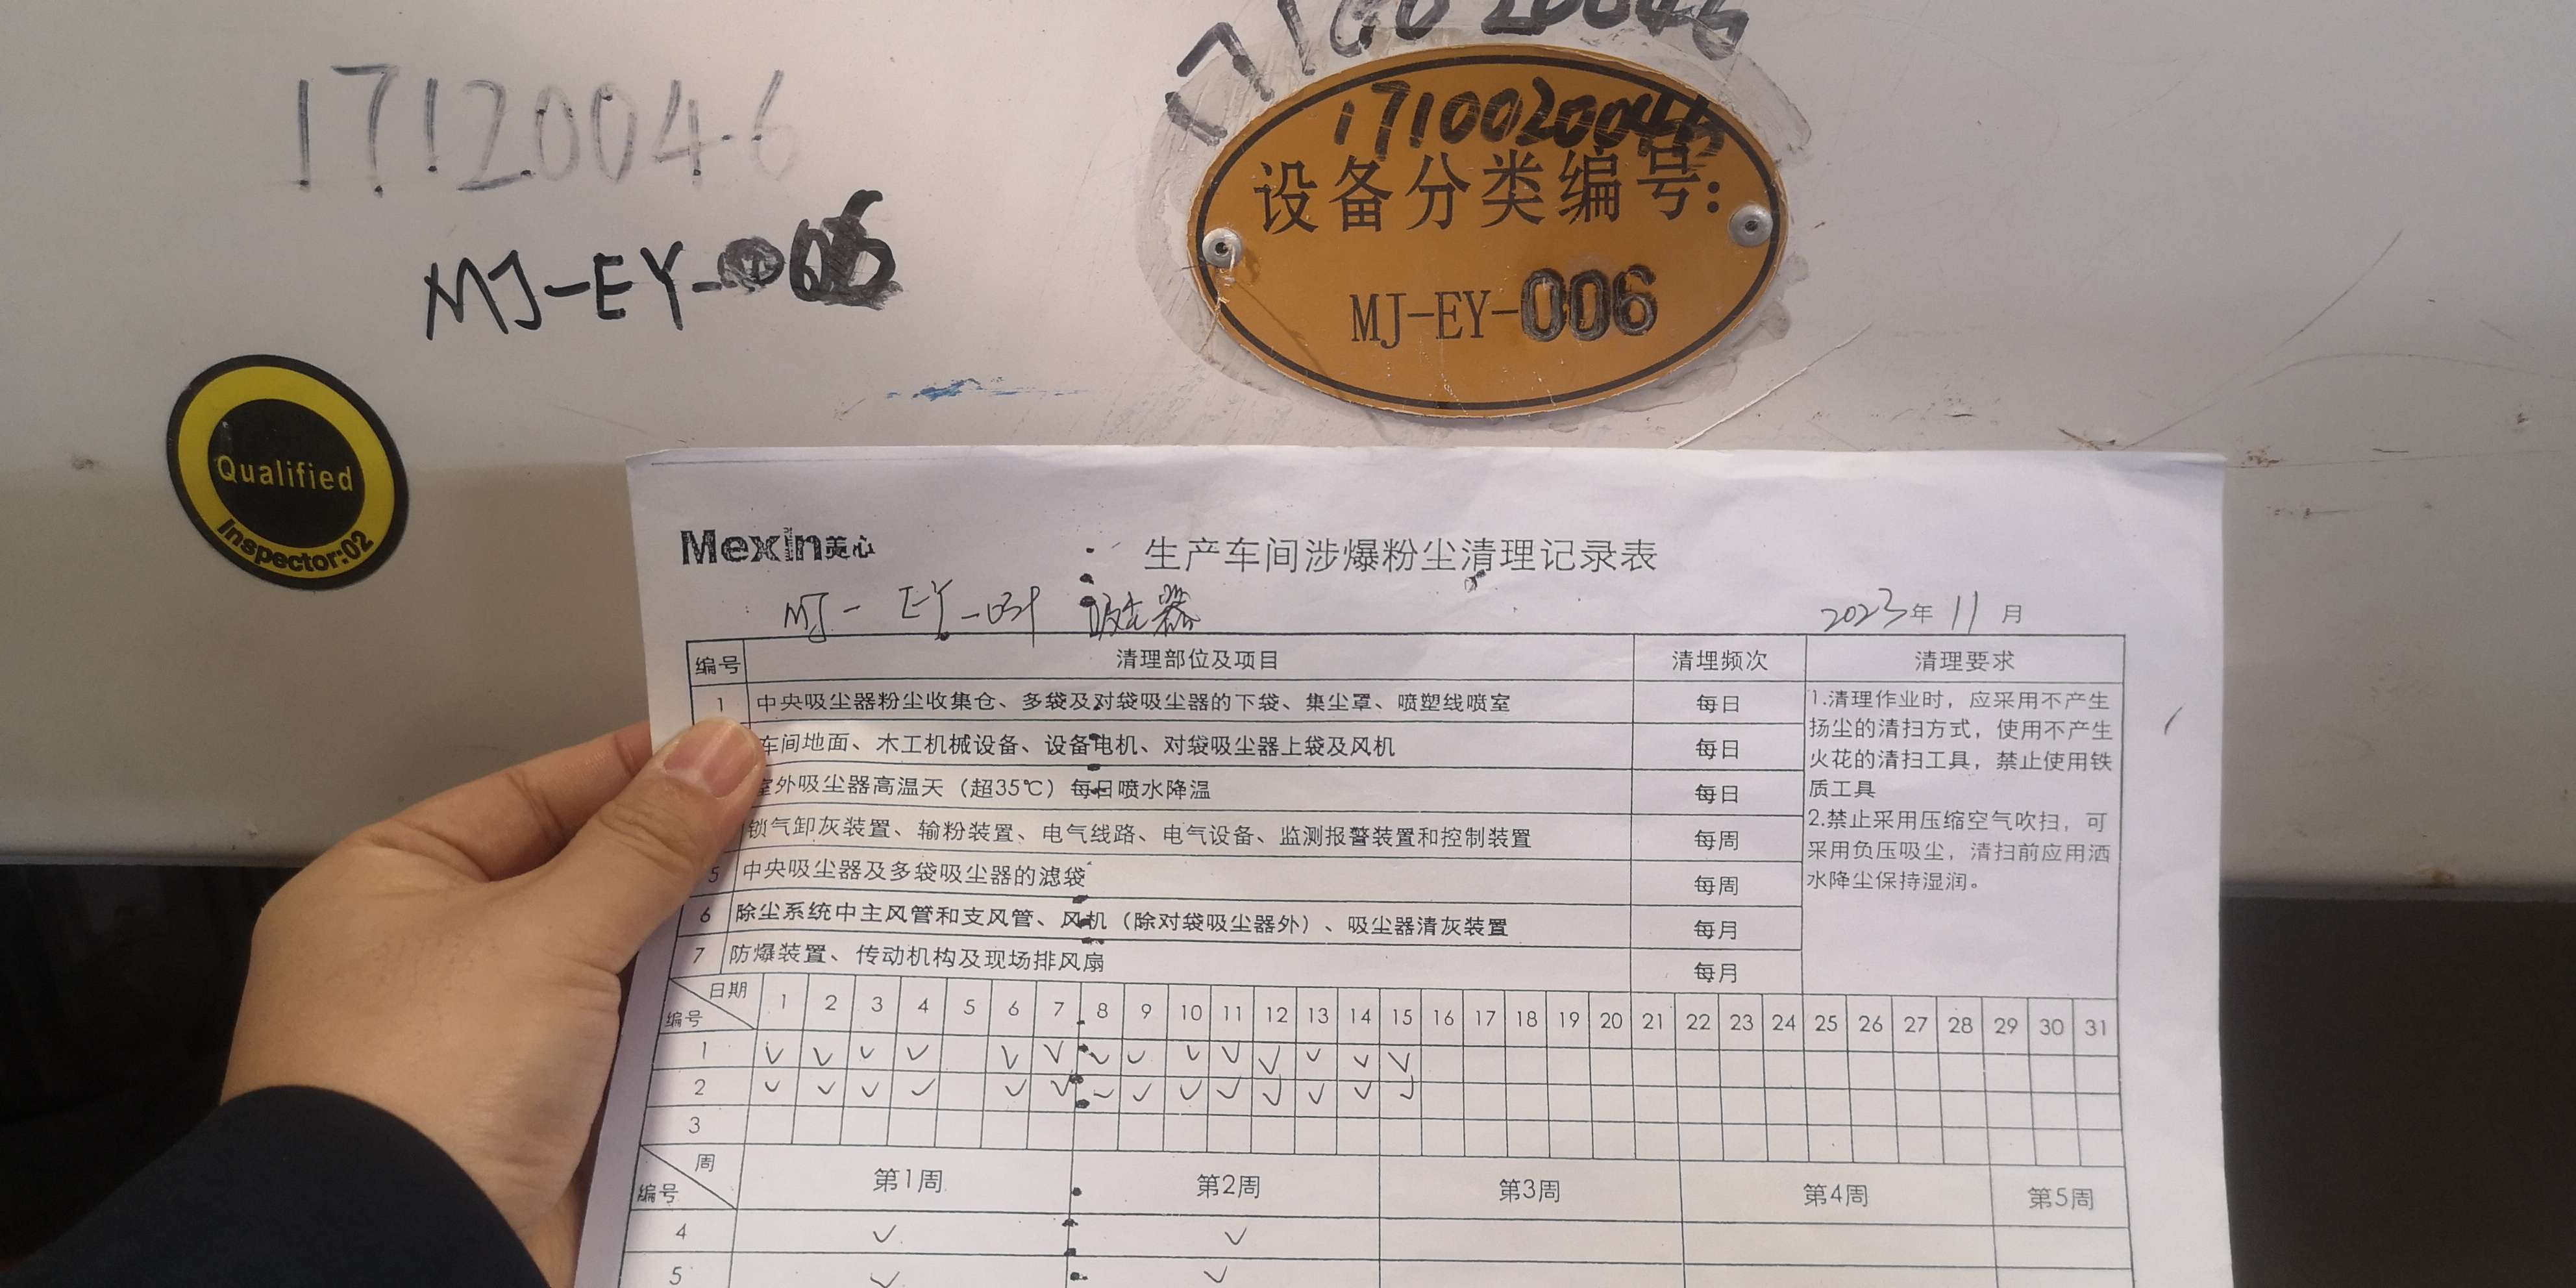 17120046
MJ-EY-006
设备分类编号:
MJ-EY-006
Qualified
Inspector:02
Mexin美心
生产车间涉爆粉尘清理记录表
MJ-EY- 吸尘器
2023年11月
编号 清理部位及项目 清理频次 清理要求
1 中央吸尘器粉尘收集仓、多袋及对袋吸尘器的下袋、集尘罩、喷塑线喷室 每日
车间地面、木工机械设备、设备电机、对袋吸尘器上袋及风机 每日
室外吸尘器高温天（超35℃）每日喷水降温 每日
锁气卸灰装置、输粉装置、电气线路、电气设备、监测报警装置和控制装置 每周
5 中央吸尘器及多袋吸尘器的滤袋 每周
6 除尘系统中主风管和支风管、风机（除对袋吸尘器外）、吸尘器清灰装置 每月
7 防爆装置、传动机构及现场排风扇 每月
1.清理作业时，应采用不产生
扬尘的清扫方式，使用不产生
火花的清扫工具，禁止使用铁
质工具
2.禁止采用压缩空气吹扫，可
采用负压吸尘，清扫前应用洒
水降尘保持湿润。
日期 编号 1 2 3 4 5 6 7 8 9 10 11 12 13 14 15 16 17 18 19 20 21 22 23 24 25 26 27 28 29 30 31
1 √ √ √ √ √ √ √ √ √ √ √ √ √ √
2 √ √ √ √ √ √ √ √ √ √ √ √ √ √
3
周 编号 第1周 第2周 第3周 第4周 第5周
4 √ √
5 √ √